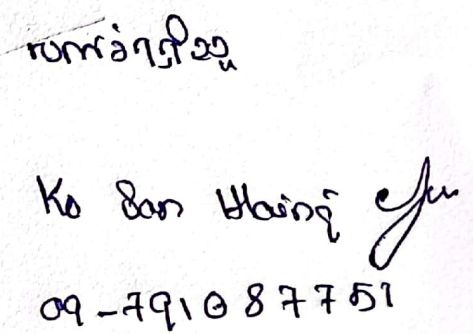 လက်ခံရရှိသူ
Ko San Hlaing
09-791087751